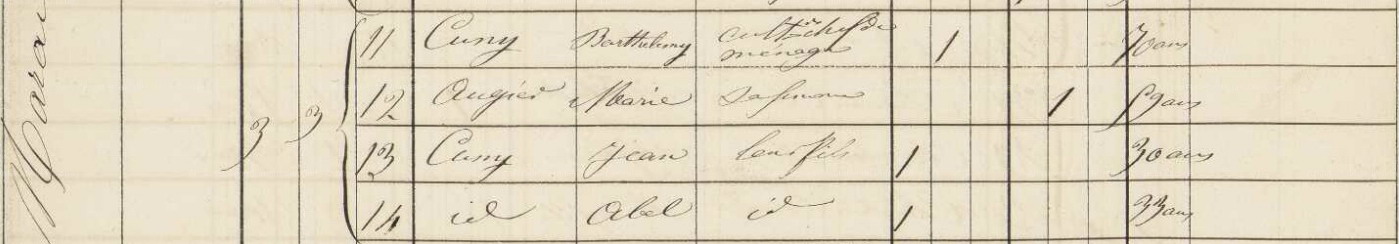 11 Cuny Barthelemy cult.r chef de
ménage 1 70 ans
3 3 12 Augier Marie sa femme 1 59 ans
13 Cuny Jean leur fils 1 30 ans
14 id Abel id 1 33 ans